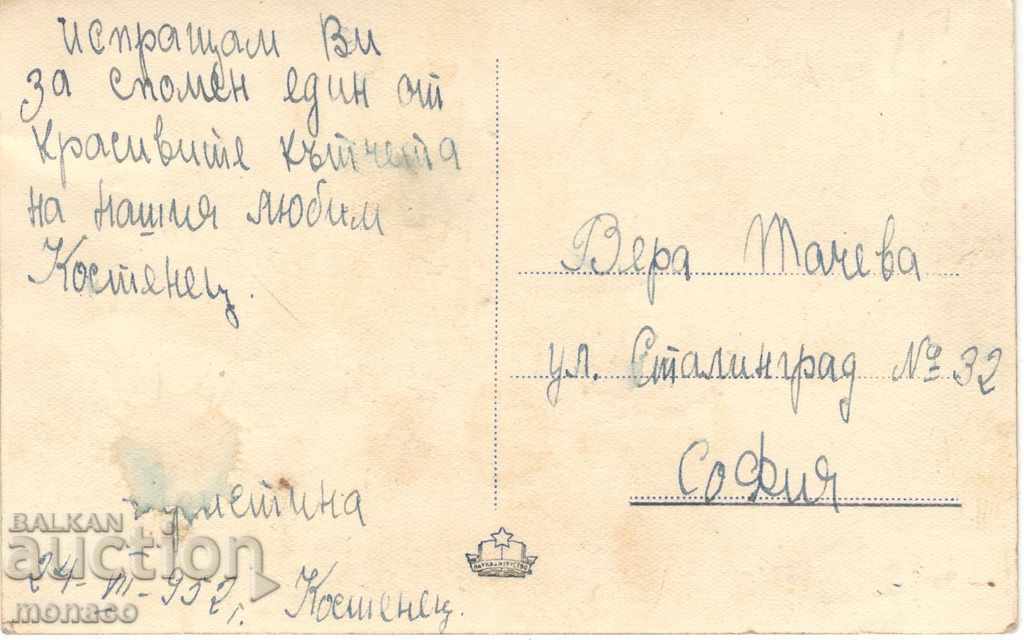 Испращам Ви
за спомен един от
красивите кътчета
на нашия любим
Костенец.
24-VII-952 г. Костенец.
Вера Тачева
ул. Сталинград № 32
София
НАУКА И ИЗКУСТВО
BALKAN
auction
monaco